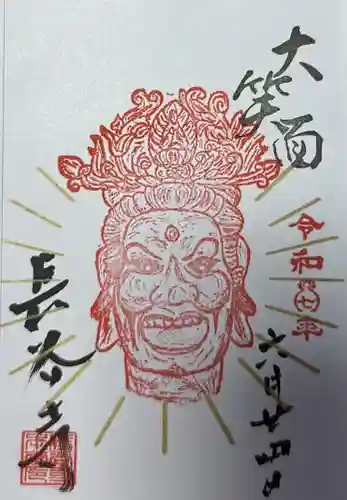 大笑面
令和七年
六月十日
長谷寺